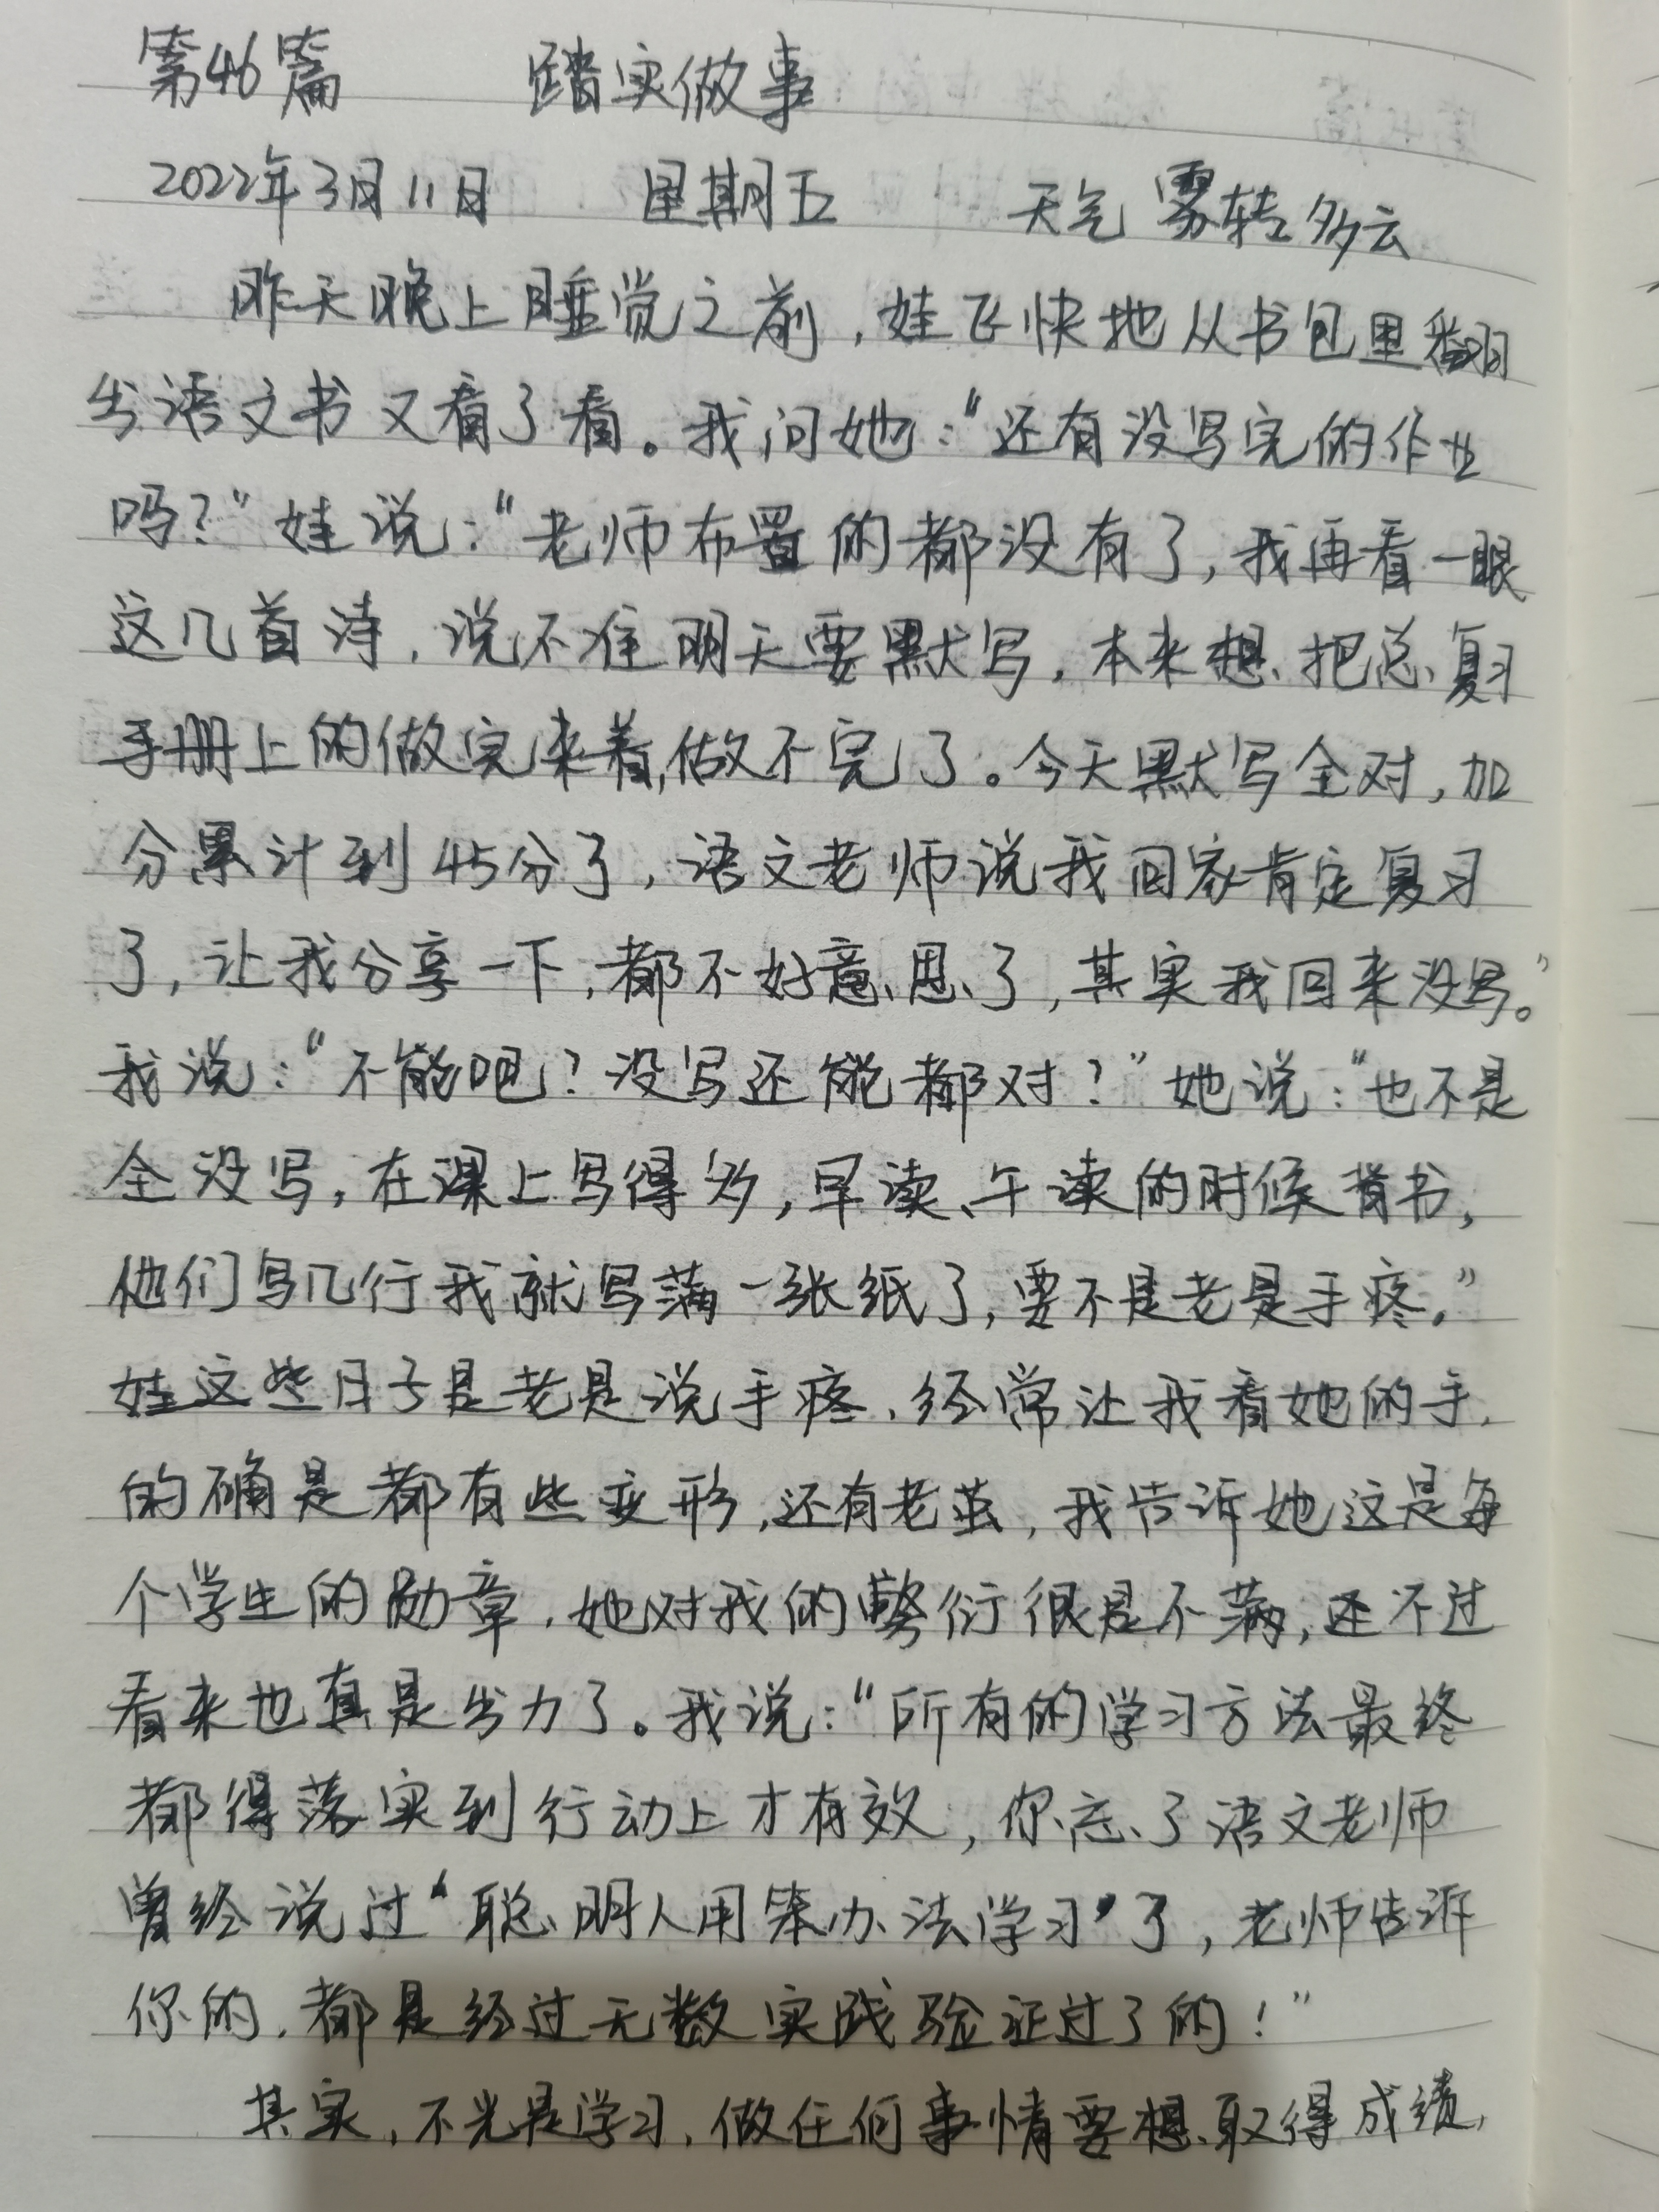 第46篇 踏实做事
2022年3月11日 星期五 天气 雾转多云
昨天晚上睡觉之前，娃飞快地从书包里翻
出语文书又看了看。我问她：“还有没写完的作业
吗？”娃说：“老师布置的都没有了，我再看一眼
这几首诗，说不准明天要默写，本来想把总复习
手册上的做完来着，做不完了。今天默写全对，加
分累计到45分了，语文老师说我回家肯定复习
了，让我分享一下，都不好意思了，其实我回来没写。”
我说：“不能吧？没写还能都对？”她说：“也不是
全没写，在课上写得多，早读、午读的时候背书，
他们写几行我就写满一张纸了，要不是老是手疼。”
娃这些日子是老是说手疼，经常让我看她的手，
的确是都有些变形，还有老茧，我告诉她这是每
个学生的勋章，她对我的敷衍很是不满，还不过
看来也真是出力了。我说：“所有的学习方法最终
都得落实到行动上才有效，你忘了语文老师
曾经说过‘聪明人用笨办法学习’了，老师告诉
你的，都是经过无数实践验证过了的！”
其实，不光是学习，做任何事情要想取得成绩，